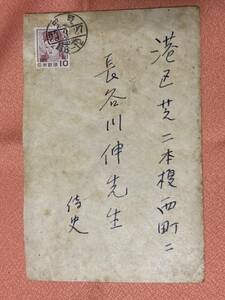 港区芝二本榎西町二
長谷川伸先生
侍史
日本郵便
10